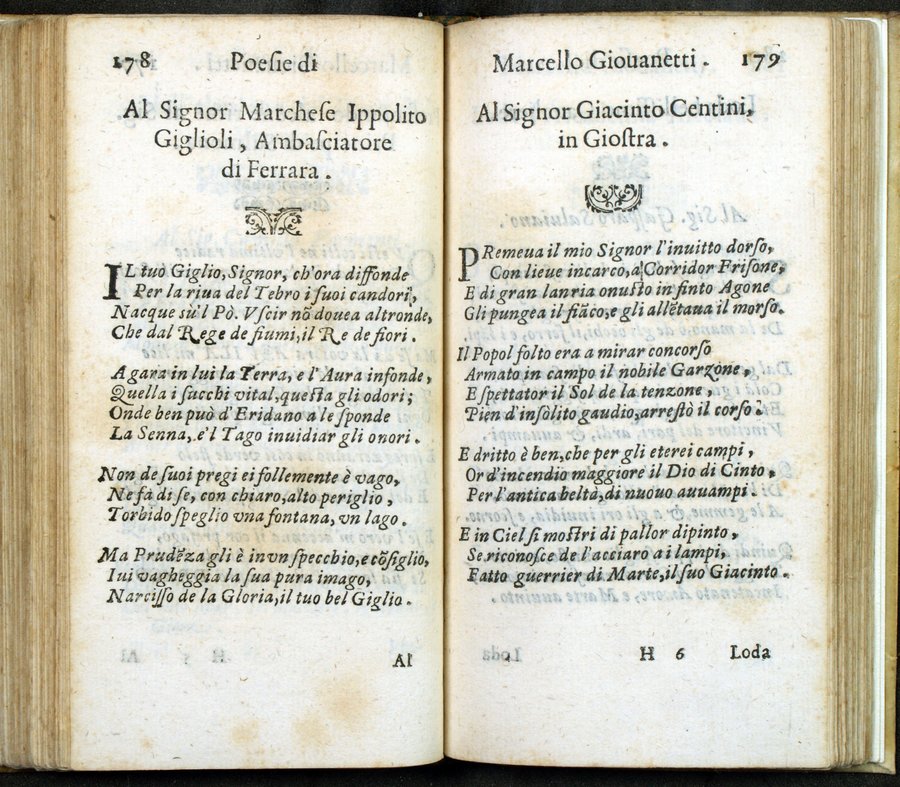 178 Poesie di
Al Signor Marchese Ippolito
Giglioli, Ambasciatore
di Ferrara.
IL tuo Giglio, Signor, ch'ora diffonde
Per la riua del Tebro i suoi candori,
Nacque su'l Pò. Vscir nõ douea altronde,
Che dal Rege de fiumi, il Re de fiori.
A gara in lui la Terra, e l'Aura infonde,
Quella i succhi vital, questa gli odori;
Onde ben può d'Eridano a le sponde
La Senna, e'l Tago inuidiar gli onori.
Non de suoi pregi ei follemente è vago,
Ne fà di se, con chiaro, alto periglio,
Torbido speglio vna fontana, vn lago.
Ma Prudẽza gli è in vn specchio, e cõsiglio,
Iui vagheggia la sua pura imago,
Narcisso de la Gloria, il tuo bel Giglio.
Al
Marcello Giouanetti. 179
Al Signor Giacinto Centini,
in Giostra.
PRemeua il mio Signor l'inuitto dorso,
Con lieue incarco, a Corridor Frisone,
E di gran lanria onusto in finto Agone
Gli pungea il fiãco, e gli allettaua il morso.
Il Popol folto era a mirar concorso
Armato in campo il nobile Garzone,
E spettator il Sol de la tenzone,
Pien d'insolito gaudio, arrestò il corso.
E dritto è ben, che per gli eterei campi,
Or d'incendio maggiore il Dio di Cinto,
Per l'antica beltà, di nuouo auuampi.
E in Ciel si mostri di pallor dipinto,
Se riconosce de l'acciaro a i lampi,
Fatto guerrier di Marte, il suo Giacinto.
H 6 Loda